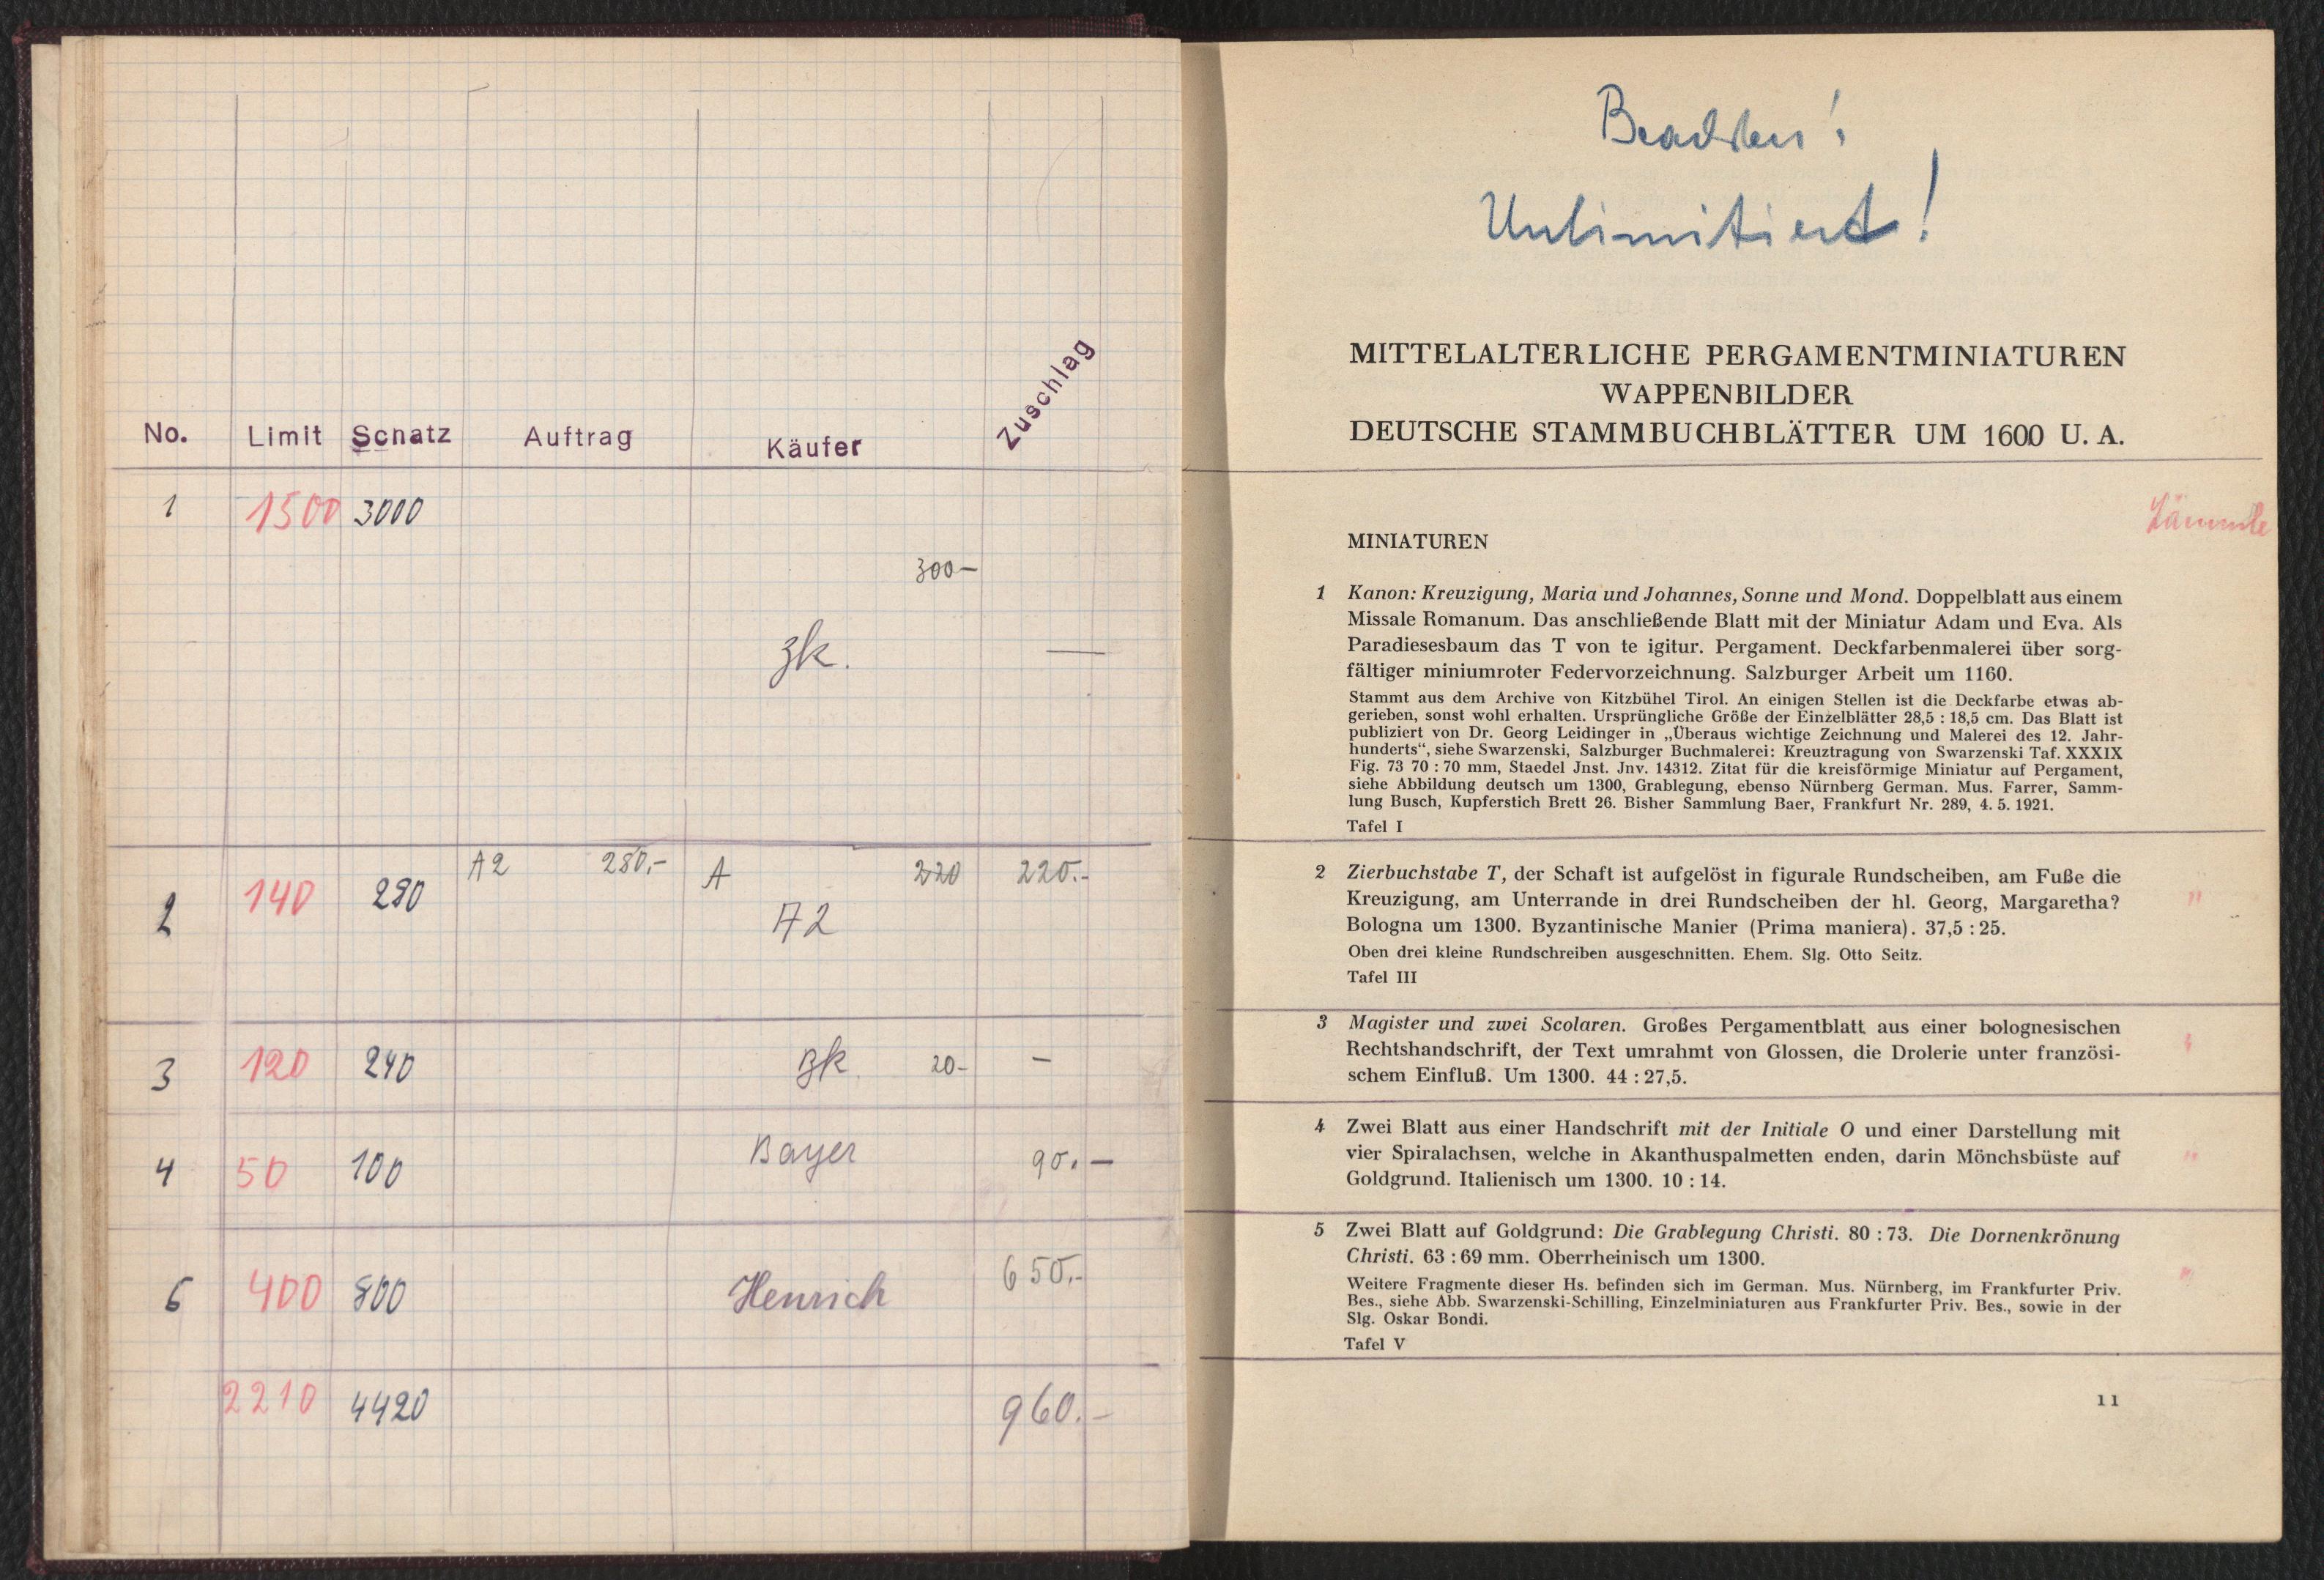 No. Limit Schatz Auftrag Käufer Zuschlag
1 1500 3000
300-
zk. —
2 140 280 A2 280,- A 220 220.-
A2
3 120 240 zk. 20- -
4 50 100 Bayer 90.-
5 400 800 Henrich 650.-
2210 4420 960.-
Beachten!
Unlimitiert!
MITTELALTERLICHE PERGAMENTMINIATUREN
WAPPENBILDER
DEUTSCHE STAMMBUCHBLÄTTER UM 1600 U. A.
Lämmle
MINIATUREN
1 Kanon: Kreuzigung, Maria und Johannes, Sonne und Mond. Doppelblatt aus einem
Missale Romanum. Das anschließende Blatt mit der Miniatur Adam und Eva. Als
Paradiesesbaum das T von te igitur. Pergament. Deckfarbenmalerei über sorg-
fältiger miniumroter Federvorzeichnung. Salzburger Arbeit um 1160.
Stammt aus dem Archive von Kitzbühel Tirol. An einigen Stellen ist die Deckfarbe etwas ab-
gerieben, sonst wohl erhalten. Ursprüngliche Größe der Einzelblätter 28,5 : 18,5 cm. Das Blatt ist
publiziert von Dr. Georg Leidinger in „Überaus wichtige Zeichnung und Malerei des 12. Jahr-
hunderts“, siehe Swarzenski, Salzburger Buchmalerei: Kreuztragung von Swarzenski Taf. XXXIX
Fig. 73 70 : 70 mm, Staedel Jnst. Jnv. 14312. Zitat für die kreisförmige Miniatur auf Pergament,
siehe Abbildung deutsch um 1300, Grablegung, ebenso Nürnberg German. Mus. Farrer, Samm-
lung Busch, Kupferstich Brett 26. Bisher Sammlung Baer, Frankfurt Nr. 289, 4. 5. 1921.
Tafel I
2 Zierbuchstabe T, der Schaft ist aufgelöst in figurale Rundscheiben, am Fuße die
Kreuzigung, am Unterrande in drei Rundscheiben der hl. Georg, Margaretha? "
Bologna um 1300. Byzantinische Manier (Prima maniera). 37,5 : 25.
Oben drei kleine Rundschreiben ausgeschnitten. Ehem. Slg. Otto Seitz.
Tafel III
3 Magister und zwei Scolaren. Großes Pergamentblatt aus einer bolognesischen
Rechtshandschrift, der Text umrahmt von Glossen, die Drolerie unter französi- "
schem Einfluß. Um 1300. 44 : 27,5.
4 Zwei Blatt aus einer Handschrift mit der Initiale O und einer Darstellung mit
vier Spiralachsen, welche in Akanthuspalmetten enden, darin Mönchsbüste auf "
Goldgrund. Italienisch um 1300. 10 : 14.
5 Zwei Blatt auf Goldgrund: Die Grablegung Christi. 80 : 73. Die Dornenkrönung
Christi. 63 : 69 mm. Oberrheinisch um 1300.
Weitere Fragmente dieser Hs. befinden sich im German. Mus. Nürnberg, im Frankfurter Priv. "
Bes., siehe Abb. Swarzenski-Schilling, Einzelminiaturen aus Frankfurter Priv. Bes., sowie in der
Slg. Oskar Bondi.
Tafel V
11